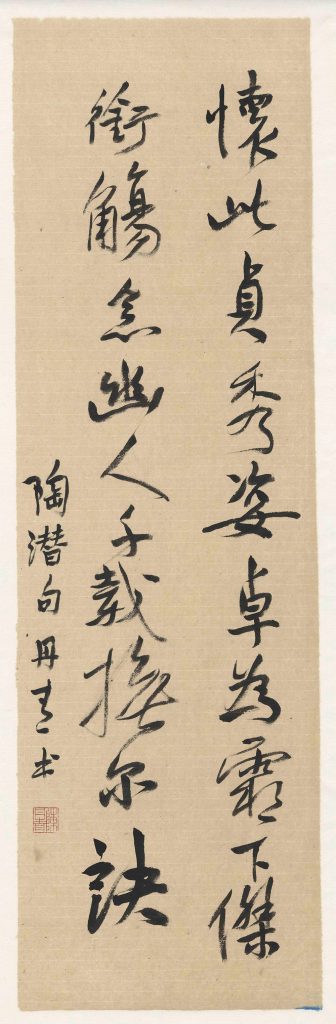 懷此貞秀姿卓為霜下傑
銜觴念幽人千載撫尔訣
陶潜句丹青